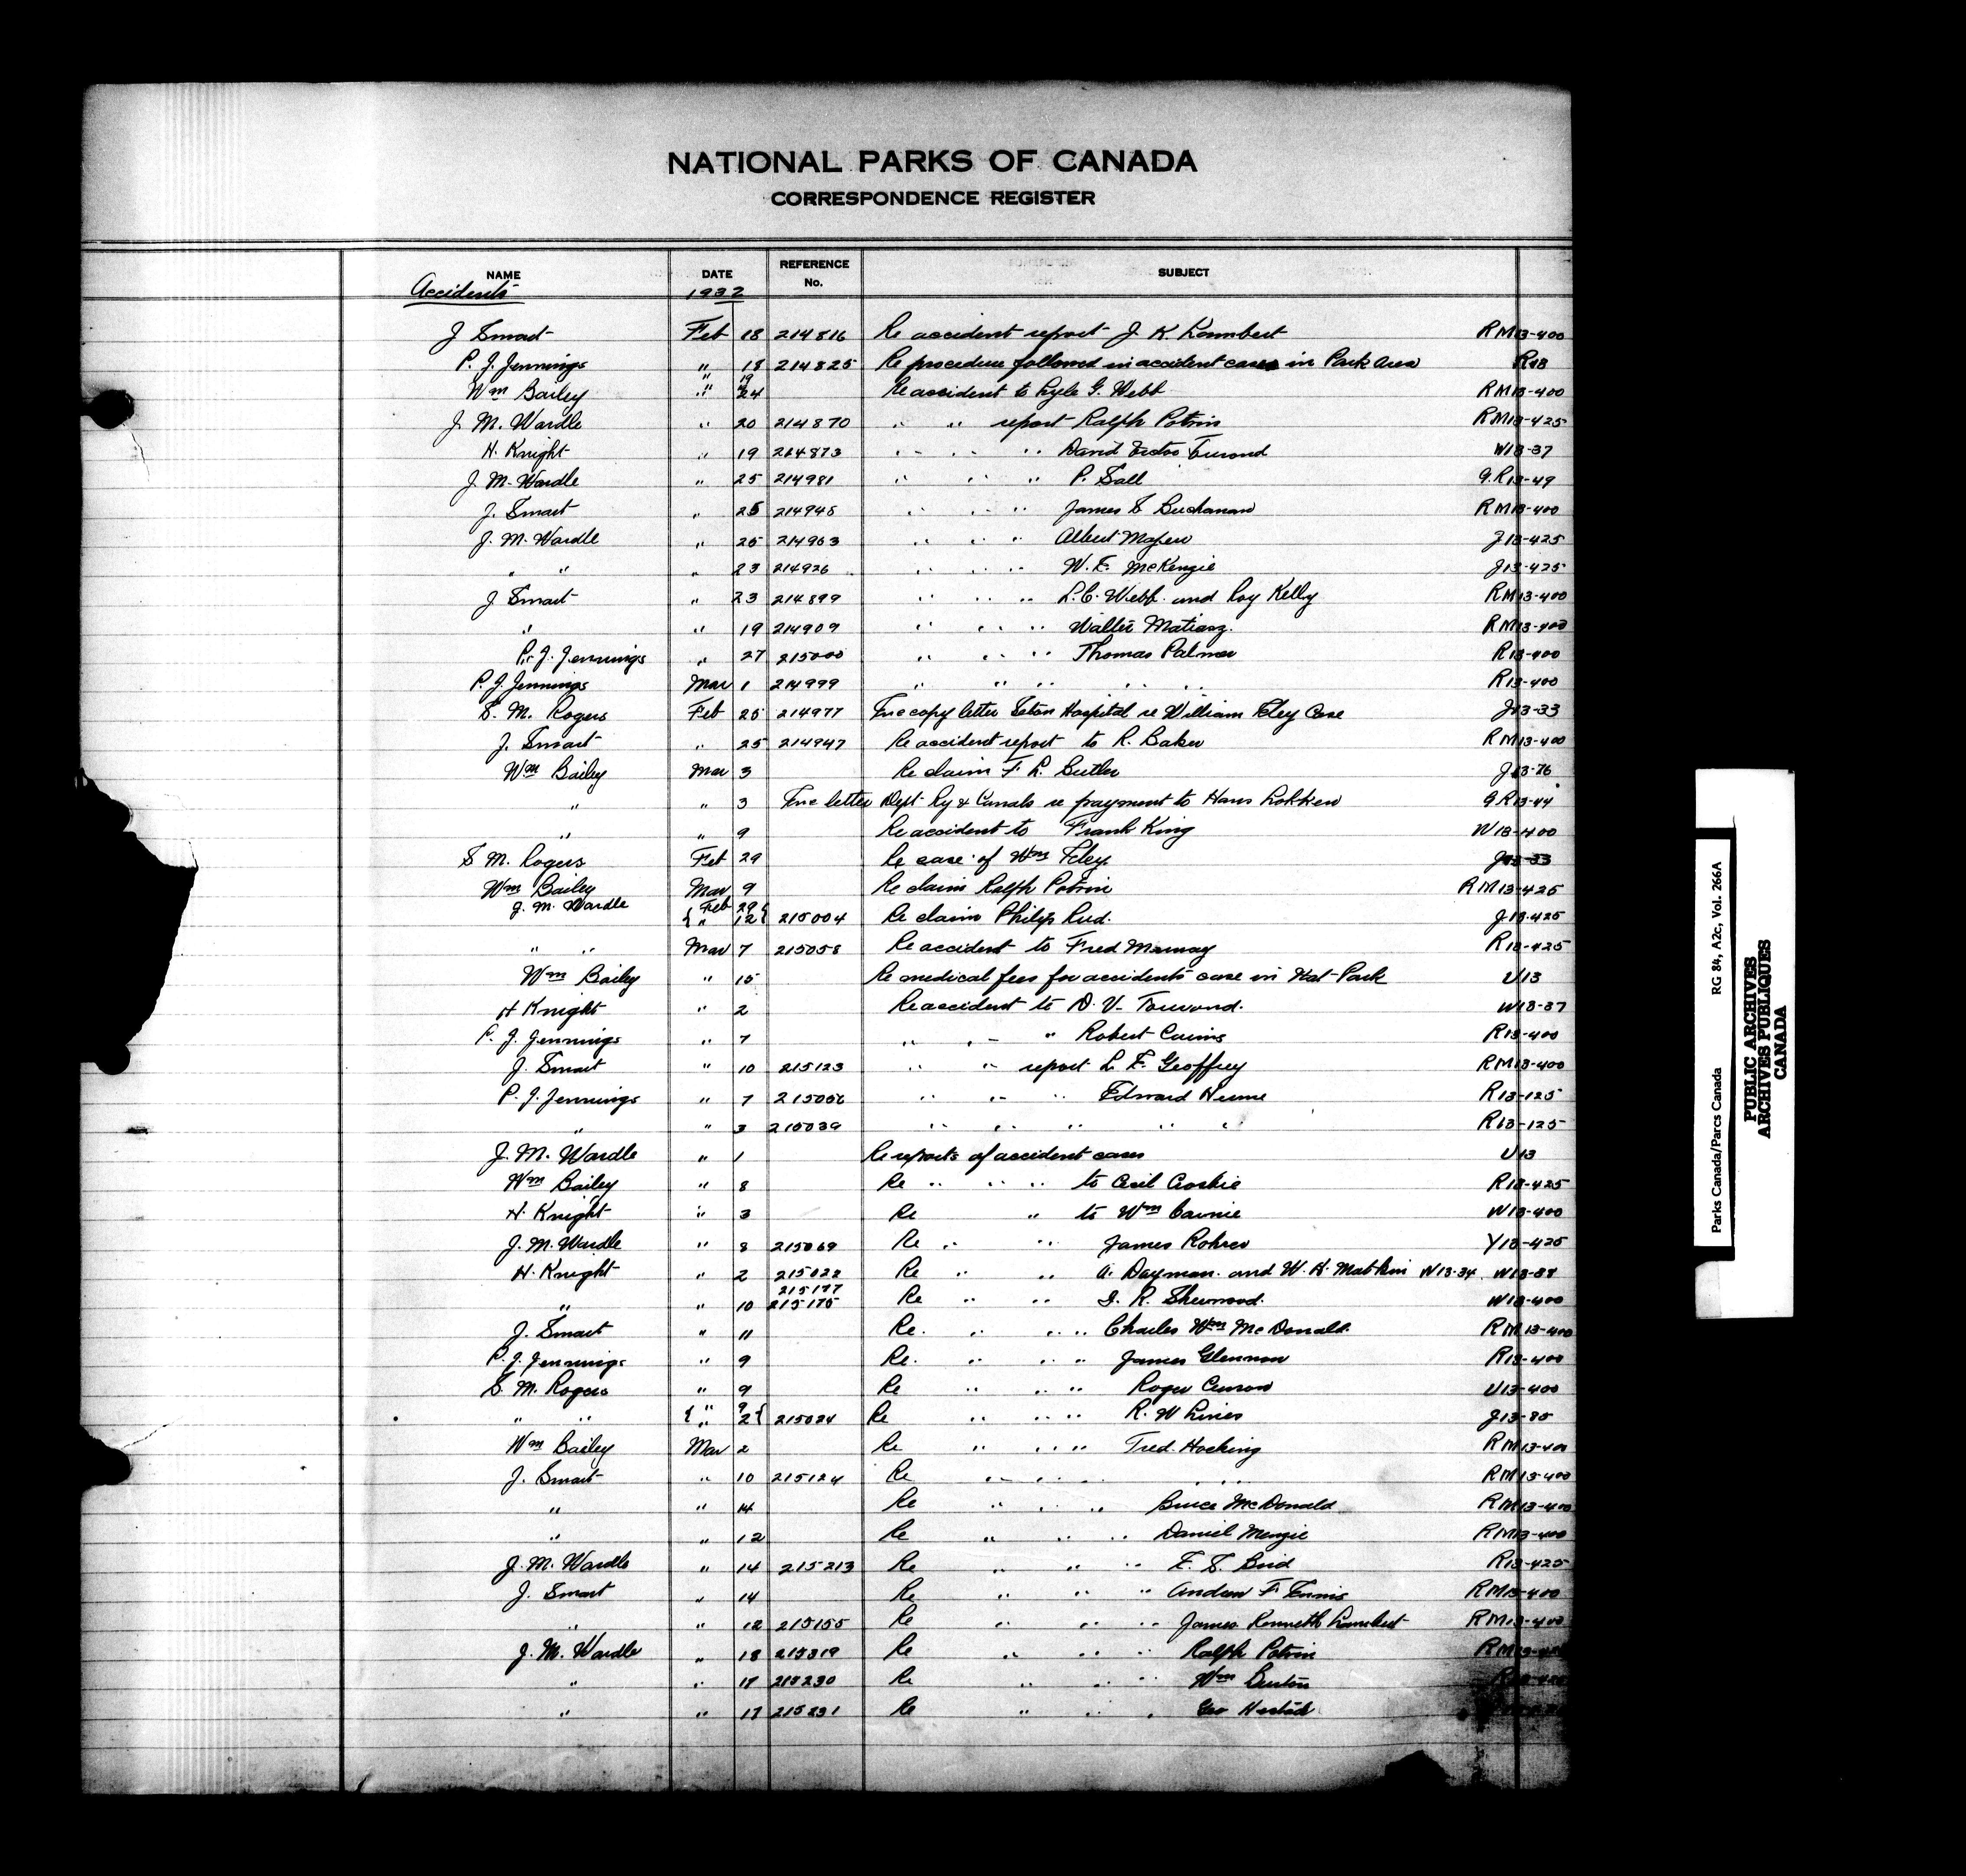 NATIONAL PARKS OF CANADA
CORRESPONDENCE REGISTER
NAME DATE REFERENCE No. SUBJECT
Accidents 1932
J Smart Feb 18 214816 Re accident report J. K. Lambert RM13-400
P. J. Jennings " 18 214825 Re procedure followed in accident cases in Park Area R13
" 19
Wm Bailey " 24 Re accident to Lyle G. Webb RM13-400
J. M. Wardle " 20 214870 " " report Ralph Potvin RM13-425
H. Knight " 19 214873 " " " David W13-37
J. M. Wardle " 25 214981 " " " P. Sall G.R13-49
J. Smart " 25 214945 " " " James S Buchanan RM13-400
J. M. Wardle " 25 214963 " " " Albert J13-425
" " " 23 214926 " " " W. E. McKenzie J13-425
J Smart " 23 214899 " " " L.C. Webb and Roy Kelly RM13-400
" " 19 214909 " " " Walter RM13-400
P. J. Jennings " 27 215000 " " " Thomas Palmer R13-400
P. J. Jennings Mar 1 214999 " " " " " R13-400
S. M. Rogers Feb 25 214977 Inc copy letter Hospital re William Case J13-33
J. Smart " 25 214947 Re accident report to R. Baker RM13-400
Wm Bailey Mar 3 Re claim F. L. Butler J13-76
" " 3 Inc letter Dept Ry & Canals re payment to Hans GR13-44
" " 9 Re accident to Frank King W13-400
S M. Rogers Feb 29 Re case of Wm J13-33
Wm Bailey Mar 9 Re claim Ralph Potvin RM13-425
J. M. Wardle { Feb 29 {
" 12 215004 Re claim Philip Rud. J13-425
" " Mar 7 215058 Re accident to Fred Murray R13-425
Wm Bailey " 15 Re medical fees for accidents case in Nat Park U13
H Knight " 2 Re accident to D. V. W13-37
P. J. Jennings " 7 " " " Robert Cairns R13-400
J. Smart " 10 215123 " " report L. E. Geoffrey RM13-400
P. J. Jennings " 7 215056 " " " Edward Hume R13-125
" " 3 215039 " " " " " R13-125
J. M. Wardle " 1 Re reports of accident cases U13
Wm Bailey " 8 Re " " " to Cecil R13-425
H. Knight " 3 Re " to Wm Cairnie W13-400
J. M. Wardle " 8 215069 Re " " James Rohrer Y13-425
H. Knight " 2 215022 Re " " A. Dayman. and W. H. Matkin W13-34 W13-38
215177
" " 10 215175 Re " " R. Sherwood. W13-400
J. Smart " 11 Re. " " " Charles Wm McDonald. RM13-400
P. J. Jennings " 9 Re. " " " James Glennon R13-400
S. M. Rogers " 9 Re " " " Roger U13-400
" " { " 9
" 2 { 215024 Re " " " R. W Lines J13-85
Wm Bailey Mar 2 Re " " " Fred. Hocking RM13-400
J. Smart " 10 215124 Re " " " " " RM13-400
" " 14 Re " " " Bruce McDonald RM13-400
" " 12 Re " " " Daniel Menzie RM13-400
J. M. Wardle " 14 215213 Re " " " E. S. Bird R13-425
J. Smart " 14 Re " " " Andrew F. Ennis RM13-400
" " 12 215155 Re " " " James Kenneth Lambert RM13-400
J. M. Wardle " 18 215319 Re " " " Ralph Potvin
" " 17 215230 Re " " " Wm
" " 17 215231 Re " " " Geo
Parks Canada/Parcs Canada RG 84, A2c, Vol. 266A
PUBLIC ARCHIVES
ARCHIVES PUBLIQUES
CANADA